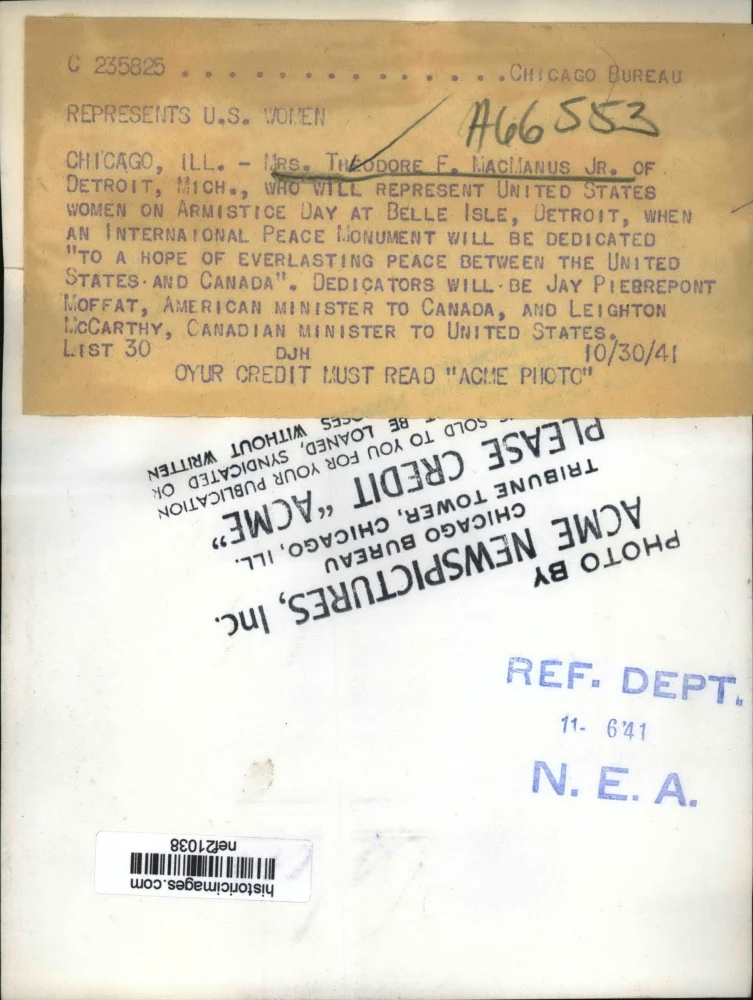 C 235825 . . . . . . . . . . . . . . CHICAGO BUREAU
A66553
REPRESENTS U.S. WOMEN
CHICAGO, ILL. - MRS. THEODORE F. MACMANUS JR. OF
DETROIT, MICH., WHO WILL REPRESENT UNITED STATES
WOMEN ON ARMISTICE DAY AT BELLE ISLE, DETROIT, WHEN
AN INTERNAIONAL PEACE MONUMENT WILL BE DEDICATED
"TO A HOPE OF EVERLASTING PEACE BETWEEN THE UNITED
STATES AND CANADA". DEDICATORS WILL BE JAY PIERREPONT
MOFFAT, AMERICAN MINISTER TO CANADA, AND LEIGHTON
MCCARTHY, CANADIAN MINISTER TO UNITED STATES.
LIST 30 DJH 10/30/41
OYUR CREDIT MUST READ "ACME PHOTO"
PHOTO BY
ACME NEWSPICTURES, Inc.
CHICAGO BUREAU
TRIBUNE TOWER, CHICAGO, ILL.
PLEASE CREDIT "ACME"
SOLD TO YOU FOR YOUR PUBLICATION
BE LOANED, SYNDICATED OR
WITHOUT WRITTEN
REF. DEPT.
11- 6'41
N. E. A.
historicimages.com
nef21038